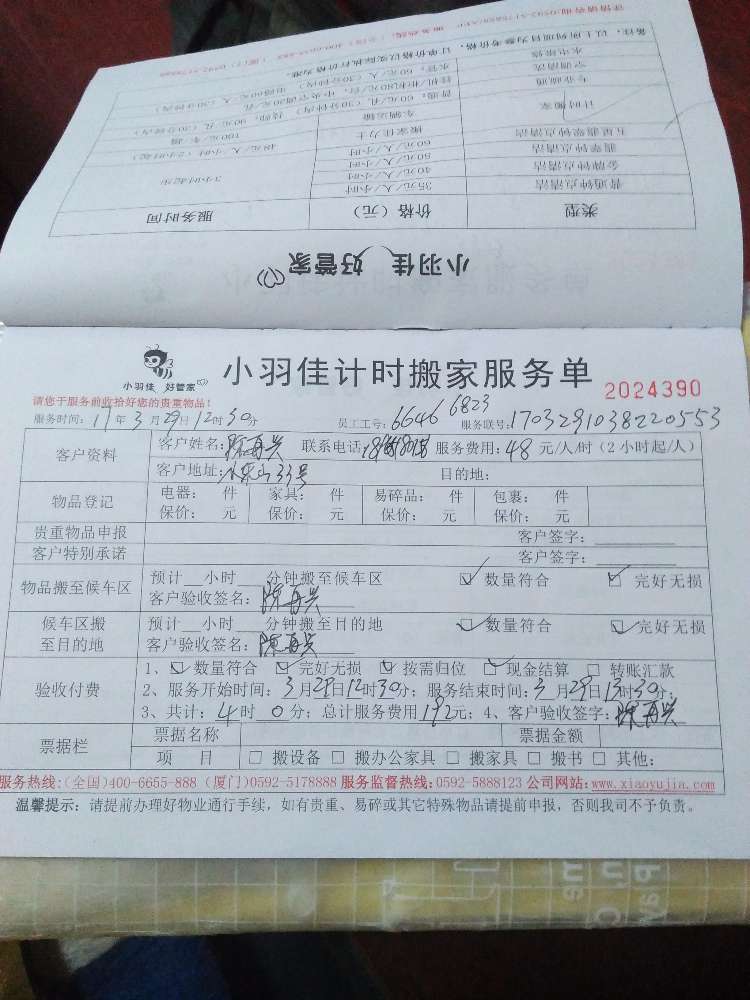 详情请咨询:0592-5178888/APP 服务热线:(全国)400-6655-888 (厦门)0592-5178888
备注:以上所列项目为参考价格,订单价格以实际执行价格为准。
类型 价格(元) 服务时间
普通钟点清洁 35元/人/小时 3小时起步
金牌钟点清洁 40元/人/小时
翡翠钟点清洁 50元/人/小时
五星翡翠钟点清洁 60元/人/小时
计时搬家 搬家佳力士 48元/人/小时(2小时起)
车辆运输 100元/车·趟
小羽佳 好管家
小羽佳 好管家
小羽佳计时搬家服务单
2024390
请您于服务前收拾好您的贵重物品!
服务时间:17年3月29日12时30分 员工工号:6646 6823 服务联号:1703291038220553
客户资料 客户姓名:陈再兴 联系电话: 服务费用:48元/人/时(2小时起/人)
客户地址:小东山33号 目的地:
物品登记 电器: 件 家具: 件 易碎品: 件 包裹: 件
保价: 元 保价: 元 保价: 元 保价: 元
贵重物品申报 客户签字:
客户特别承诺 客户签字:
物品搬至候车区 预计 小时 分钟搬至候车区 ☑ 数量符合 ☑ 完好无损
客户验收签名:陈再兴
候车区搬至目的地 预计 小时 分钟搬至目的地 ☑ 数量符合 ☑ 完好无损
客户验收签名:陈再兴
验收付费 1、☑ 数量符合 ☑ 完好无损 ☑ 按需归位 ☑ 现金结算 □ 转账汇款
2、服务开始时间:3月29日12时30分;服务结束时间:3月29日13时30分;
3、共计:4时0分;总计服务费用192元;4、客户验收签字:陈再兴
票据栏 票据名称 票据金额
项 目 □ 搬设备 □ 搬办公家具 □ 搬家具 □ 搬书 □ 其他:
服务热线:(全国)400-6655-888 (厦门)0592-5178888 服务监督热线:0592-5888123 公司网站:www.xiaoyujia.com
温馨提示:请提前办理好物业通行手续,如有贵重、易碎或其它特殊物品请提前申报,否则我司不予负责。